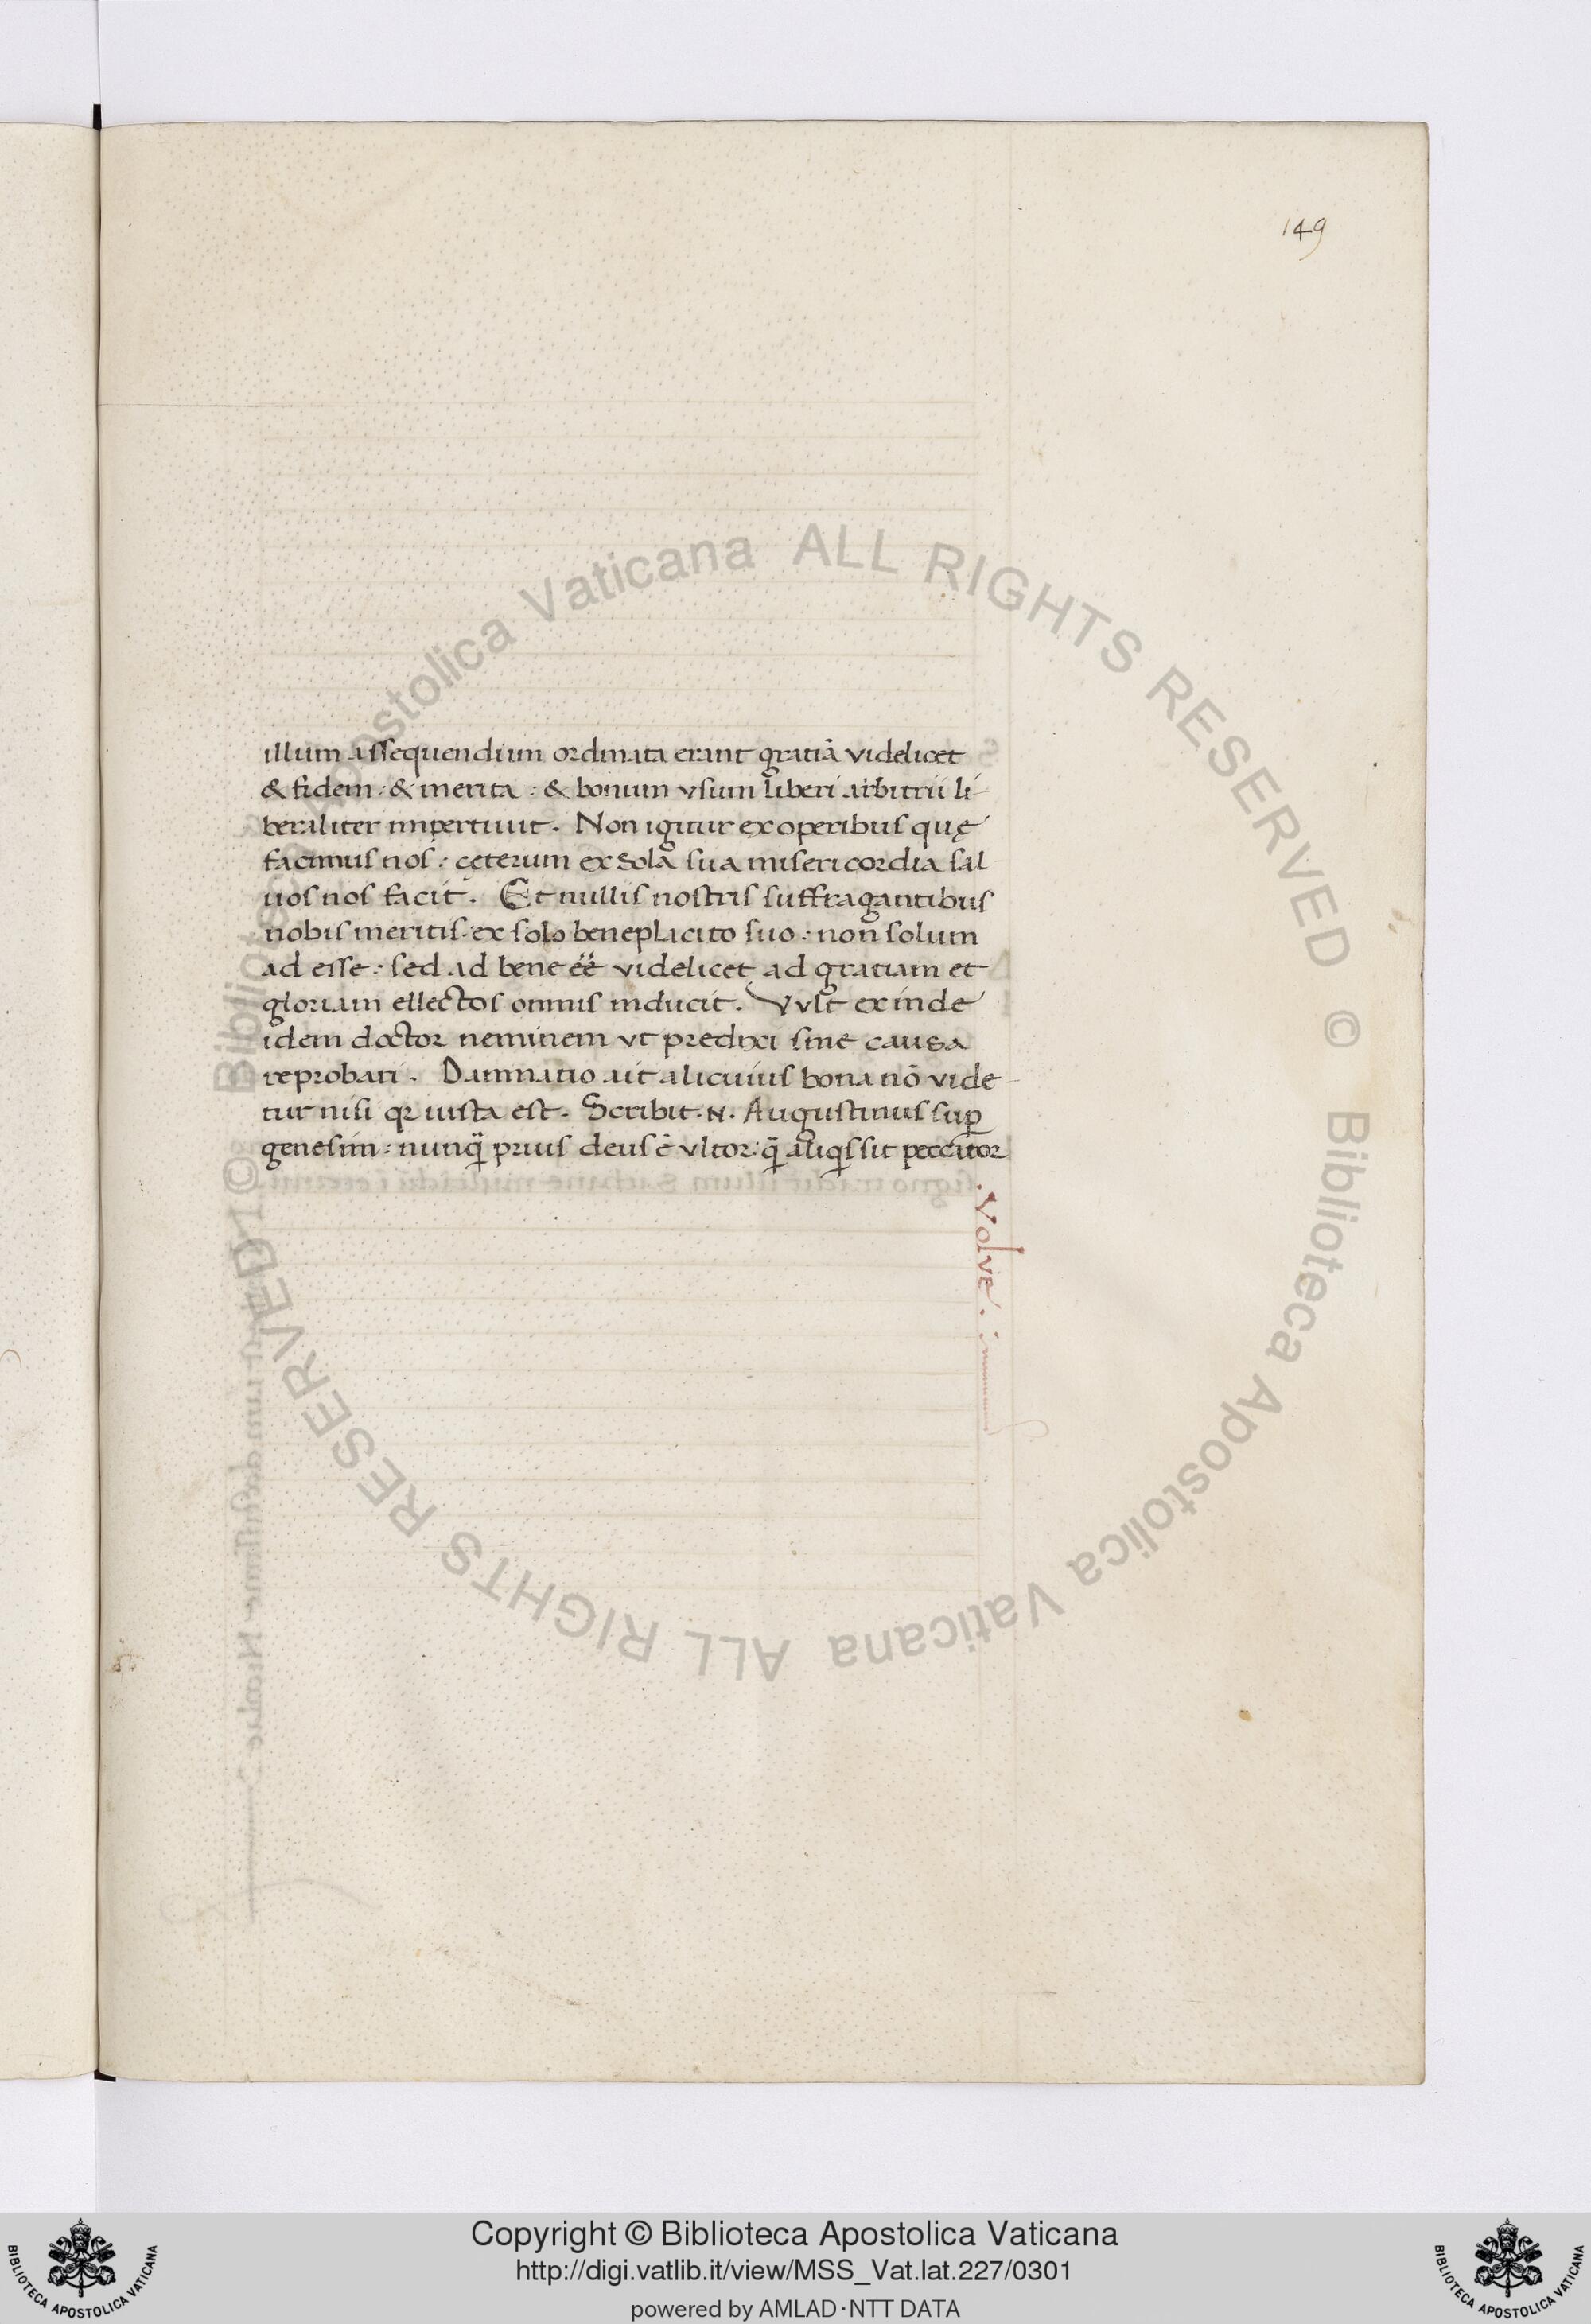 149
illum assequendum ordinata erant gratiā videlicet
& fidem : & merita : & bonum vsum liberi arbitrii li-
beraliter impertiuit. Non igitur ex operibus quę
facimus nos : cęterum ex sola sua misericordia sal
uos nos facit. Et nullis nostris suffragantibus
nobis meritis. ex solo beneplacito suo : non solum
ad esse : sed ad bene eē videlicet ad gratiam et
gloriam ellectos omnis inducit. Vvlt exinde
idem doctor neminem vt predixi sine causa
reprobari. Damnatio ait alicuius bona nō vide-
tur nisi qr iusta est. Scribit .N. Augustinus sup
genesim : nunq̄ prius deus ē vltor : q̄ aliqs sit peccator
. Volve .
Biblioteca Apostolica Vaticana ALL RIGHTS RESERVED © Biblioteca Apostolica Vaticana ALL RIGHTS RESERVED ©
Copyright © Biblioteca Apostolica Vaticana
http://digi.vatlib.it/view/MSS_Vat.lat.227/0301
powered by AMLAD·NTT DATA
BIBLIOTECA APOSTOLICA VATICANA
BIBLIOTECA APOSTOLICA VATICANA